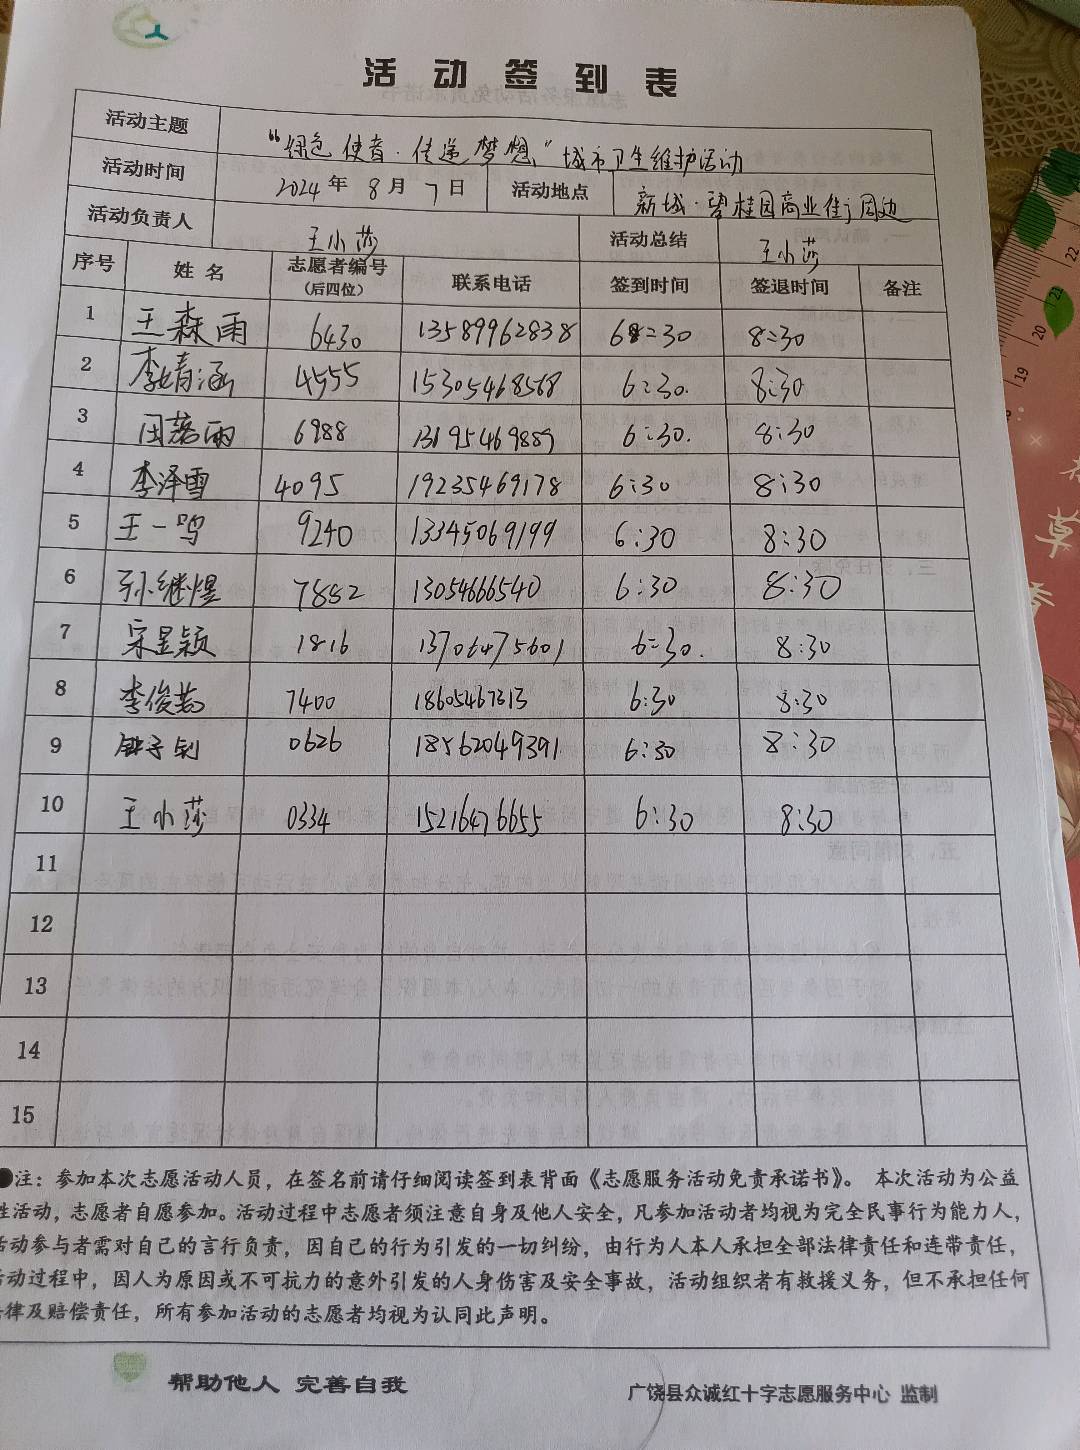 活动签到表
活动主题 “绿色使者·传递梦想”城市卫生维护活动
活动时间 2024年8月7日 活动地点 新城·碧桂园商业街周边
活动负责人 王小莎 活动总结 王小莎
序号 姓名 志愿者编号（后四位） 联系电话 签到时间 签退时间 备注
1 王森雨 6430 13589962838 6:30 8:30
2 李婧涵 4555 15305468568 6:30. 8:30
3 田落雨 6988 13195469889 6:30. 8:30
4 李泽雪 4095 19235469178 6:30 8:30
5 王一鸣 9240 13345069199 6:30 8:30
6 孙继煜 7882 13054666540 6:30 8:30
7 宋昱颖 1816 13706475601 6:30. 8:30
8 李俊 7400 18605467313 6:30 8:30
9 子钊 0626 18562049391 6:30 8:30
10 王小莎 0334 15216476655 6:30 8:30
11
12
13
14
15
●注：参加本次志愿活动人员，在签名前请仔细阅读签到表背面《志愿服务活动免责承诺书》。 本次活动为公益
性活动，志愿者自愿参加。活动过程中志愿者须注意自身及他人安全，凡参加活动者均视为完全民事行为能力人，
活动参与者需对自己的言行负责，因自己的行为引发的一切纠纷，由行为人本人承担全部法律责任和连带责任，
活动过程中，因人为原因或不可抗力的意外引发的人身伤害及安全事故，活动组织者有救援义务，但不承担任何
法律及赔偿责任，所有参加活动的志愿者均视为认同此声明。
帮助他人 完善自我
广饶县众诚红十字志愿服务中心 监制
19
20
21
22
草
香